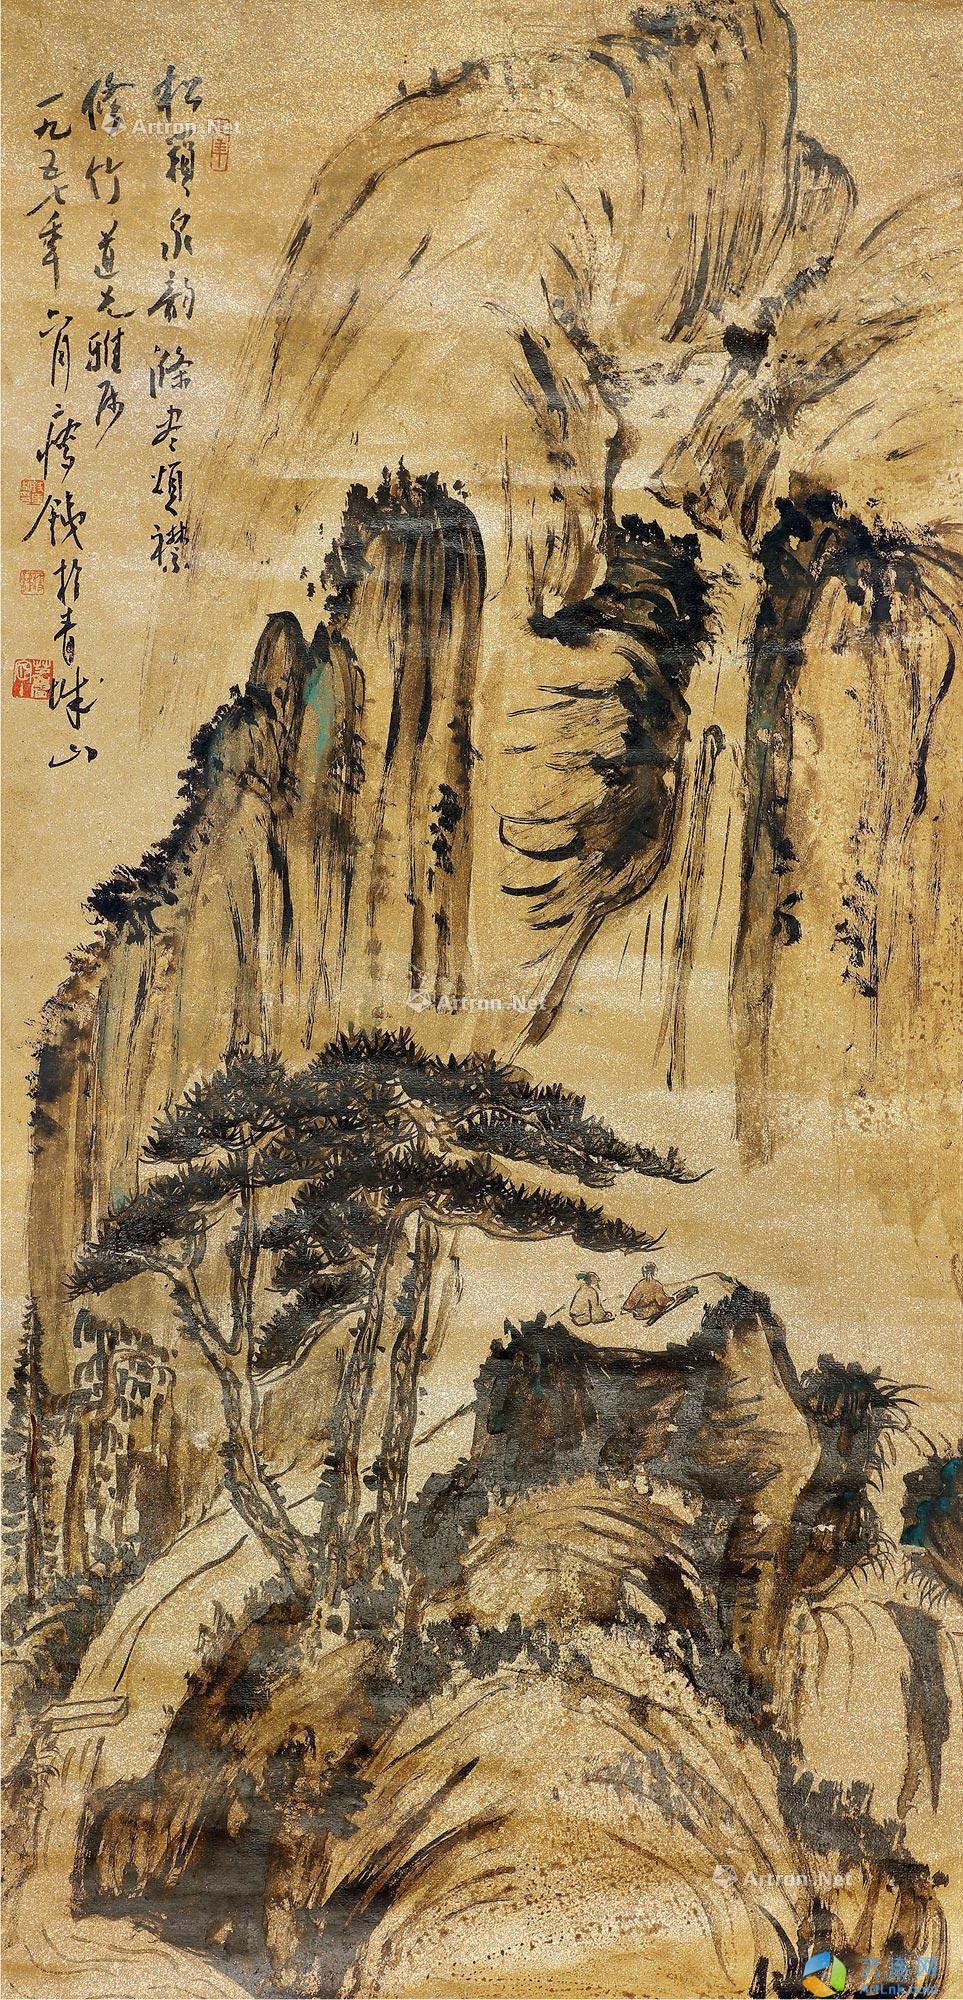 松籁泉韵涤尽烦襟
修竹道兄雅属
一九五七年六月瘦铁於青城山
Artron.Net
Artron.Net
Artron.Net
艺连网
ArtLnk.com